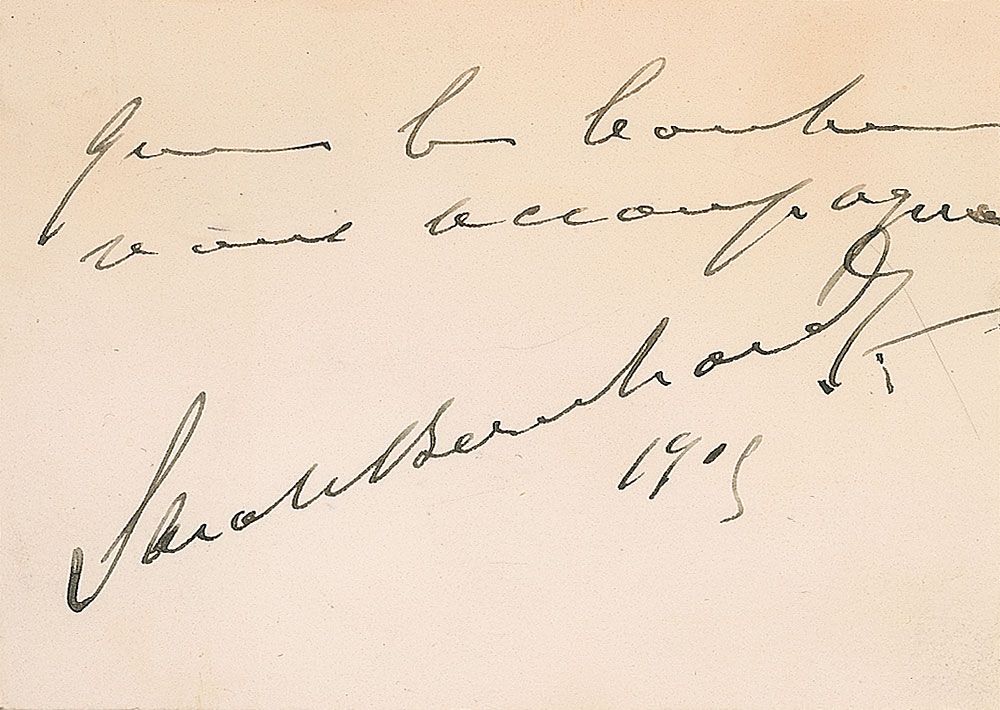 Que le bonheur
vous accompagne
Sarah Bernhardt
1905